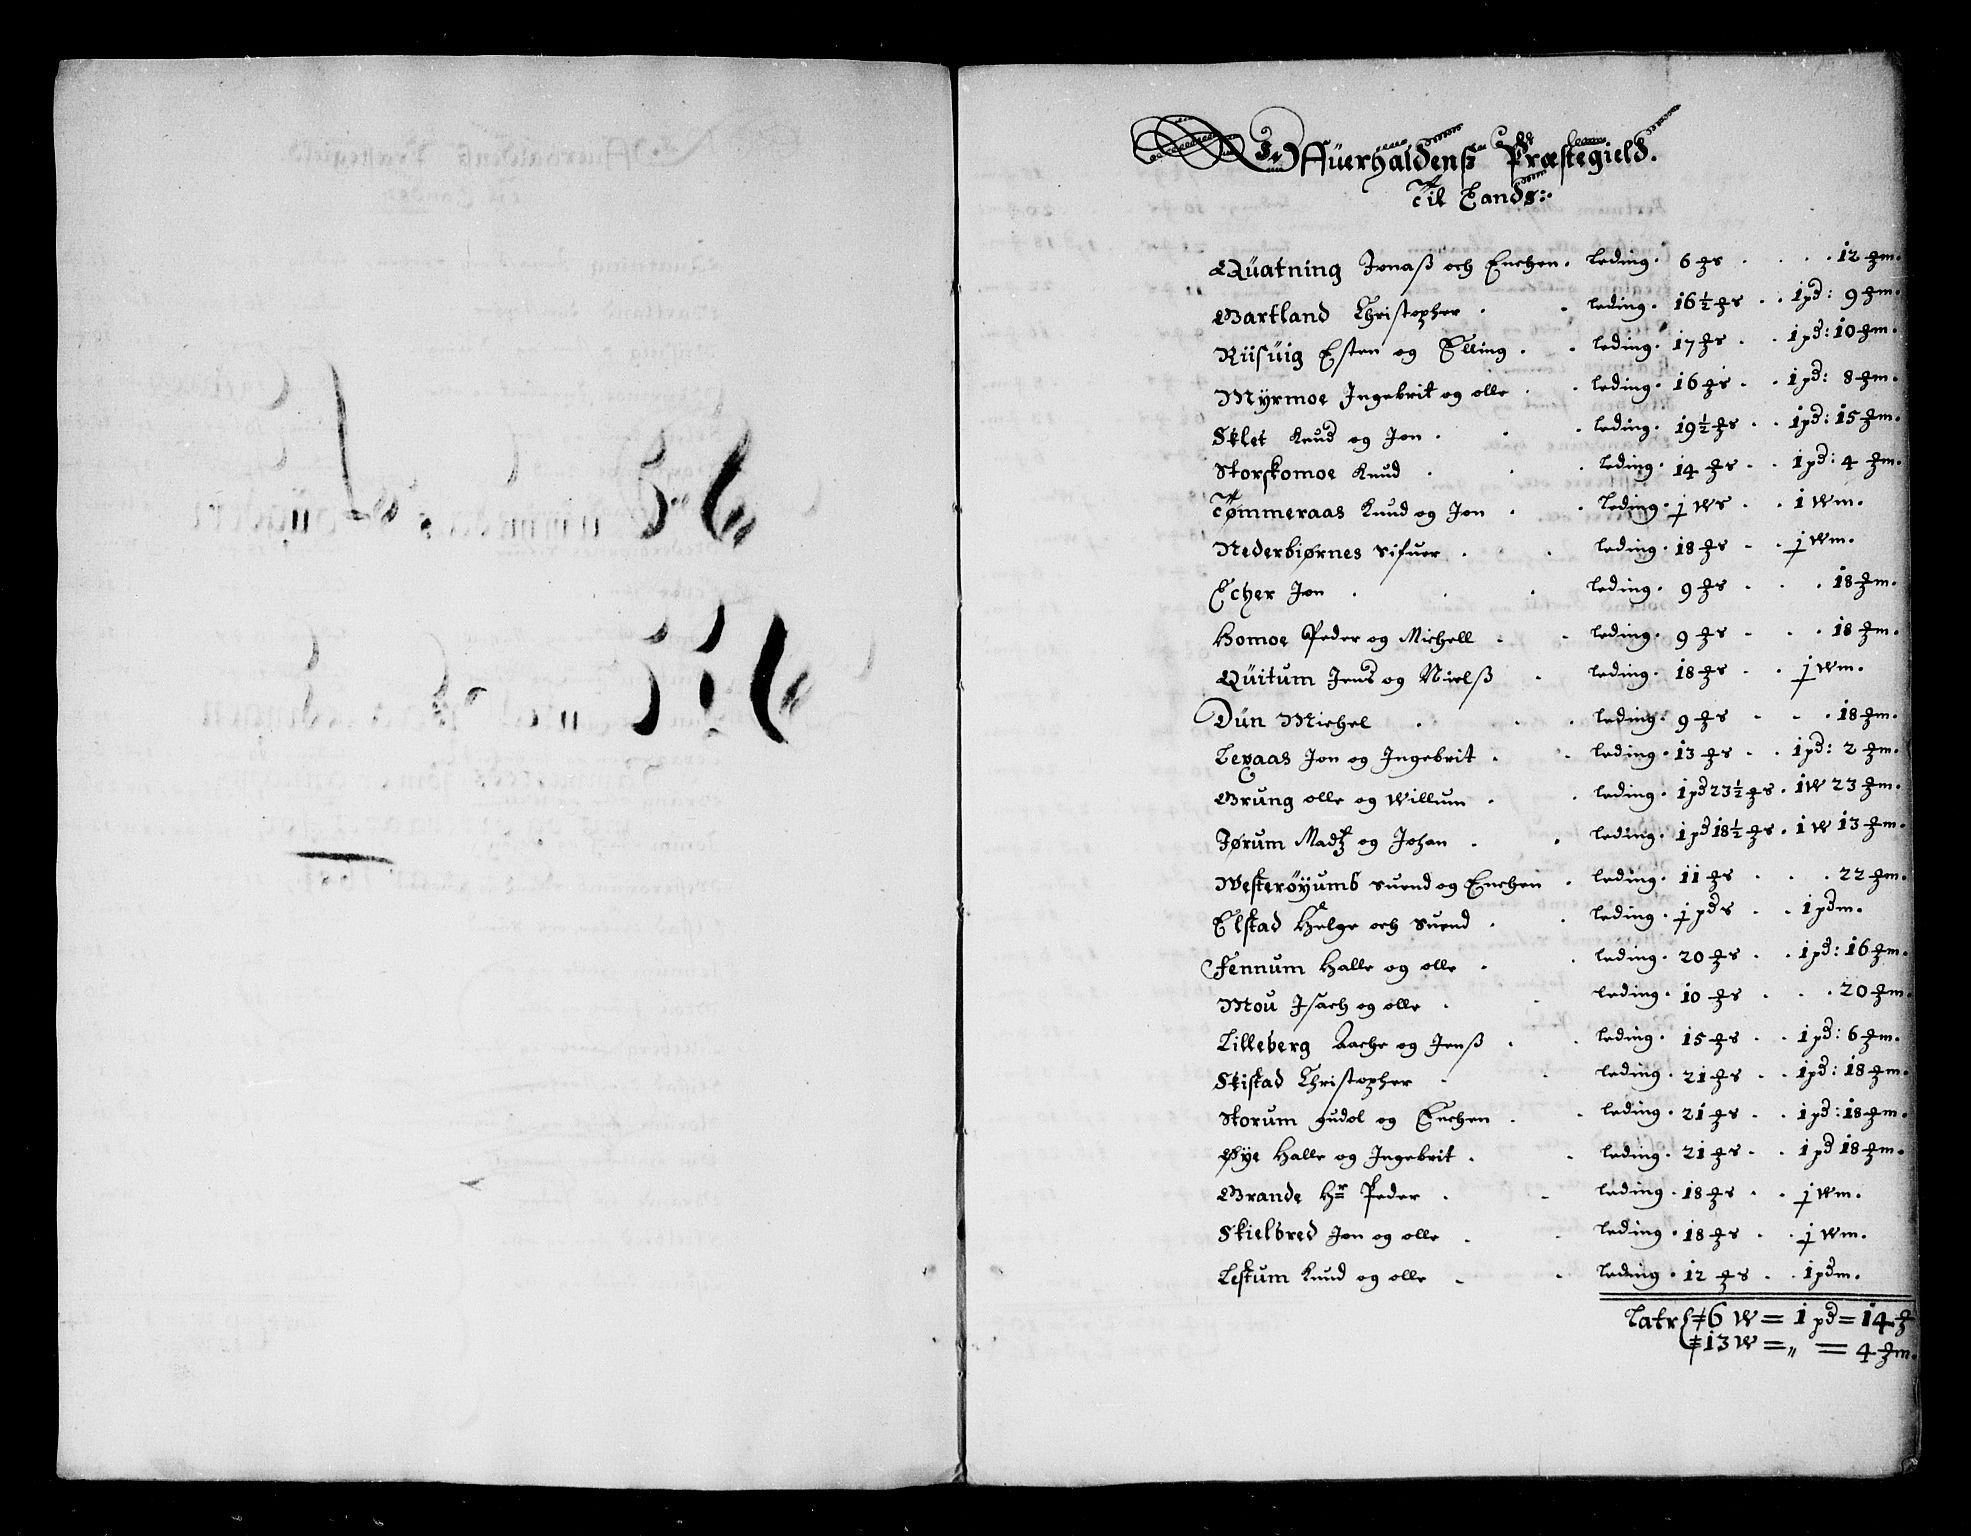 Offüerhaldenß Præstegield.
Til Lands:
Qüatning Jonaß och Enchen. leding. 6 ℔s . . . . 12 ℔m.
Gartland Christopher . . leding. 16½ ℔s . . 1 pd: 9 ℔m.
Riisüig Esten og Elling . . leding. 17 ℔s . . 1 pd: 10 ℔m.
Myrmoe Ingebrit og olle . . leding. 16 ℔s . . 1 pd: 8 ℔m.
Sklet Knud og Jon . . . leding. 19½ ℔s . . 1 pd: 15 ℔m.
Storskomoe Knud . . . leding. 14 ℔s . . 1 pd: 4 ℔m.
Tømmeraas Knud og Jon . . leding. j Ws . . 1 Wm.
Nederbiørnes Sifuer . . leding. 18 ℔s . . j Wm.
Echer Jon . . . leding. 9 ℔s . . . 18 ℔m.
Homoe Peder og Michell . . leding. 9 ℔s . . . 18 ℔m.
Qüitum Jens og Nielß . leding. 18 ℔s . . j Wm.
Dün Michel . . . leding. 9 ℔s . . . 18 ℔m.
Leraas Jon og Ingebrit . . leding. 13 ℔s . . 1 pd: 2 ℔m.
Grung olle og Willum . . leding. 1 pd 23½ ℔s . 1 W 23 ℔m.
Jørum Madtz og Johan . . leding. 1 pd 18½ ℔s . 1 W 13 ℔m.
Westerøyums Suend og Enchen . leding. 11 ℔s . . . 22 ℔m.
Elstad Helge och Suend . . leding. j pds . . 1 pdm.
Fennum Halle og olle . . leding. 20 ℔s . . 1 pd: 16 ℔m.
Moü Isach og olle . . leding. 10 ℔s . . . 20 ℔m.
Lilleberg Aache og Jenß . . leding. 15 ℔s . . 1 pd: 6 ℔m.
Skistad Christopher . . leding. 21 ℔s . . 1 pd: 18 ℔m.
Storum gudol og Enchen . . leding. 21 ℔s . . 1 pd: 18 ℔m.
Øye Halle og Ingebrit . . leding. 21 ℔s . . 1 pd 18 ℔m.
Grande Hr Peder . . leding. 18 ℔s . . j Wm.
Skielbred Jon og olle . . leding. 18 ℔s . . j Wm.
Lestum Knud og olle . . leding. 12 ℔s . . 1 pdm.
Latr 6 W = 1 pd = 14 ℔
13 W = „ = 4 ℔m.